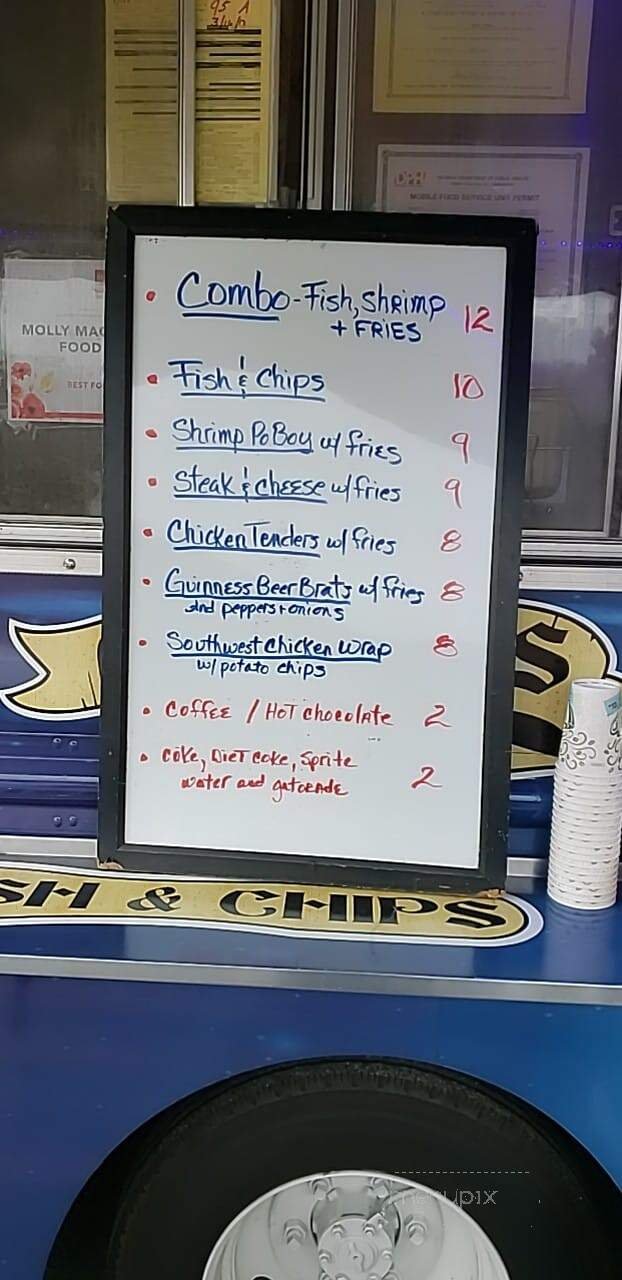 95 A
MOBILE FOOD SERVICE UNIT PERMIT
MOLLY MAC
FOOD
BEST FO
• Combo - Fish, Shrimp 12
+ FRIES
• Fish & Chips 10
• Shrimp PoBoy w/ fries 9
• Steak & cheese w/ fries 9
• Chicken Tenders w/ fries 8
• Guinness Beer Brats w/ fries 8
and peppers + onions
• Southwest Chicken Wrap 8
w/ potato chips
• Coffee / Hot chocolate 2
• Coke, Diet Coke, Sprite
water and gatorade 2
S
SH & CHIPS
menupix